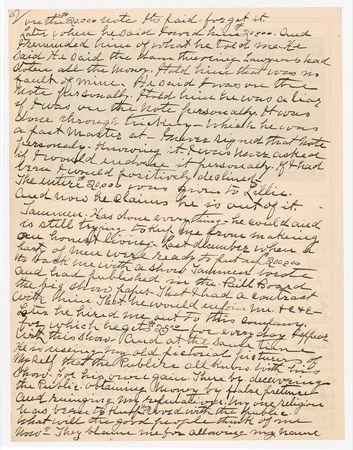 5)
over the $20,000 note Its paid forget it.
Later when he said I owed him $20,000. And
I reminded him of what he told me. He
said He said the damn thieving Lawyers had
stolen all the money. I told him that was no
fault of mine. He said I was on the
Note personally. I told him he was a liar
if I was on the Note personally. It was
done through trickery. Which he was
a past Master at. I never signed that Note
personaly. Knowing it. I was never asked
if I would endorse it personaly. If I had
been I would positively declined.
The entire $20,000 was given to Lillie.
And now he claims he is out of it.
Tammen. Has done everything he could and
is still trying to keep me from making
an honest living. Last december when a
lot of men were ready to put up $100,000
to back me with a show Tammen wrote
and had published in the Bill Board
the big show paper. That I had a contract
with him. That he would enjoin me &c &c
Later he hired me out to this company.
for which he gets for every day I appear
with this Show. And at the same time
He is using my old pictorial pictures of
Myself that the Public all knows with his
Show. For his own gain. There by deceiving
the Public obtaining money by false pretenses
And ruining my reputation. In one religion
has been to keep Good with the Public
What will the good people think of me
Now? They blame me for allowing my name